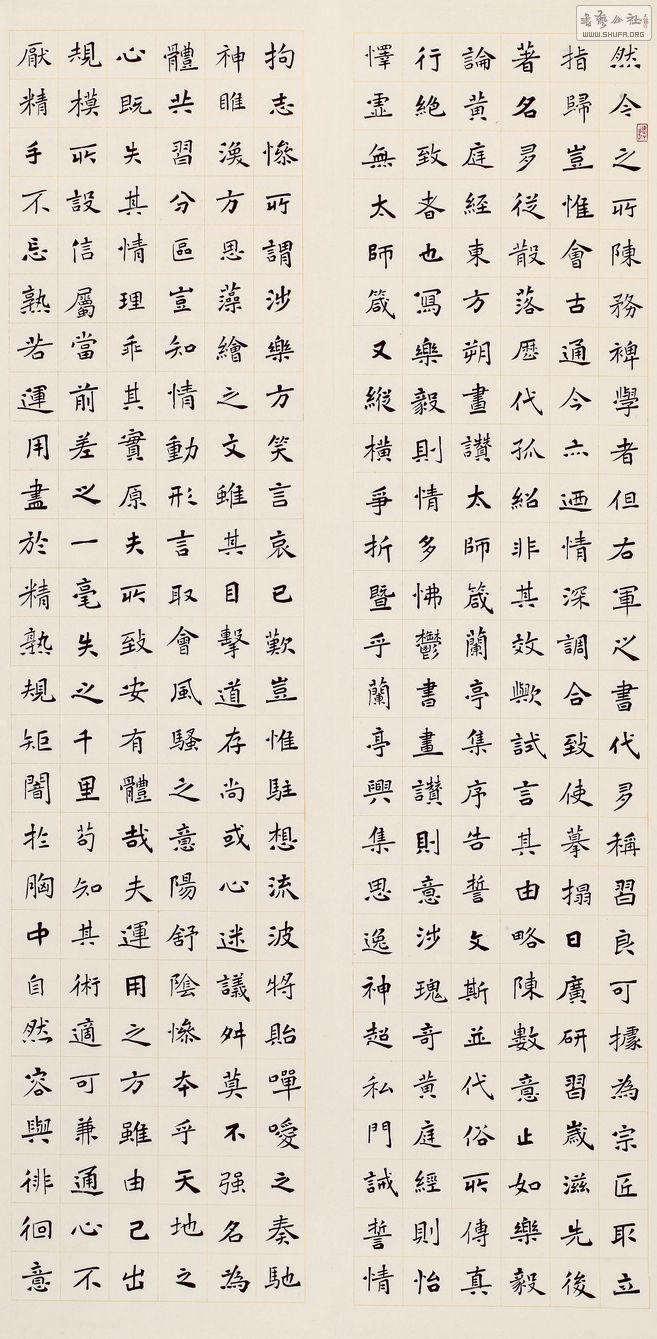 然今之所陳務裨學者但右軍之書代多稱習良可據為宗匠取立
指歸豈惟會古通今亦迺情深調合致使摹搨日廣研習歲滋先後
著名多從散落歷代孤紹非其效歟試言其由略陳數意止如樂毅
論黃庭經東方朔畫讚太師箴蘭亭集序告誓文斯並代俗所傳真
行絕致者也寫樂毅則情多怫鬱書畫讚則意涉瑰奇黃庭經則怡
懌虛無太師箴又縱橫爭折暨乎蘭亭興集思逸神超私門誡誓情
拘志慘所謂涉樂方笑言哀已歎豈惟駐想流波將貽嘽噯之奏馳
神睢渙方思藻繪之文雖其目擊道存尚或心迷議舛莫不强名為
體共習分區豈知情動形言取會風騷之意陽舒陰慘本乎天地之
心既失其情理乖其實原夫所致安有體哉夫運用之方雖由己出
規模所設信屬當前差之一毫失之千里苟知其術適可兼通心不
厭精手不忘熟若運用盡於精熟規矩闇於胸中自然容與徘徊意
書藝公社
WWW.SHUFA.ORG